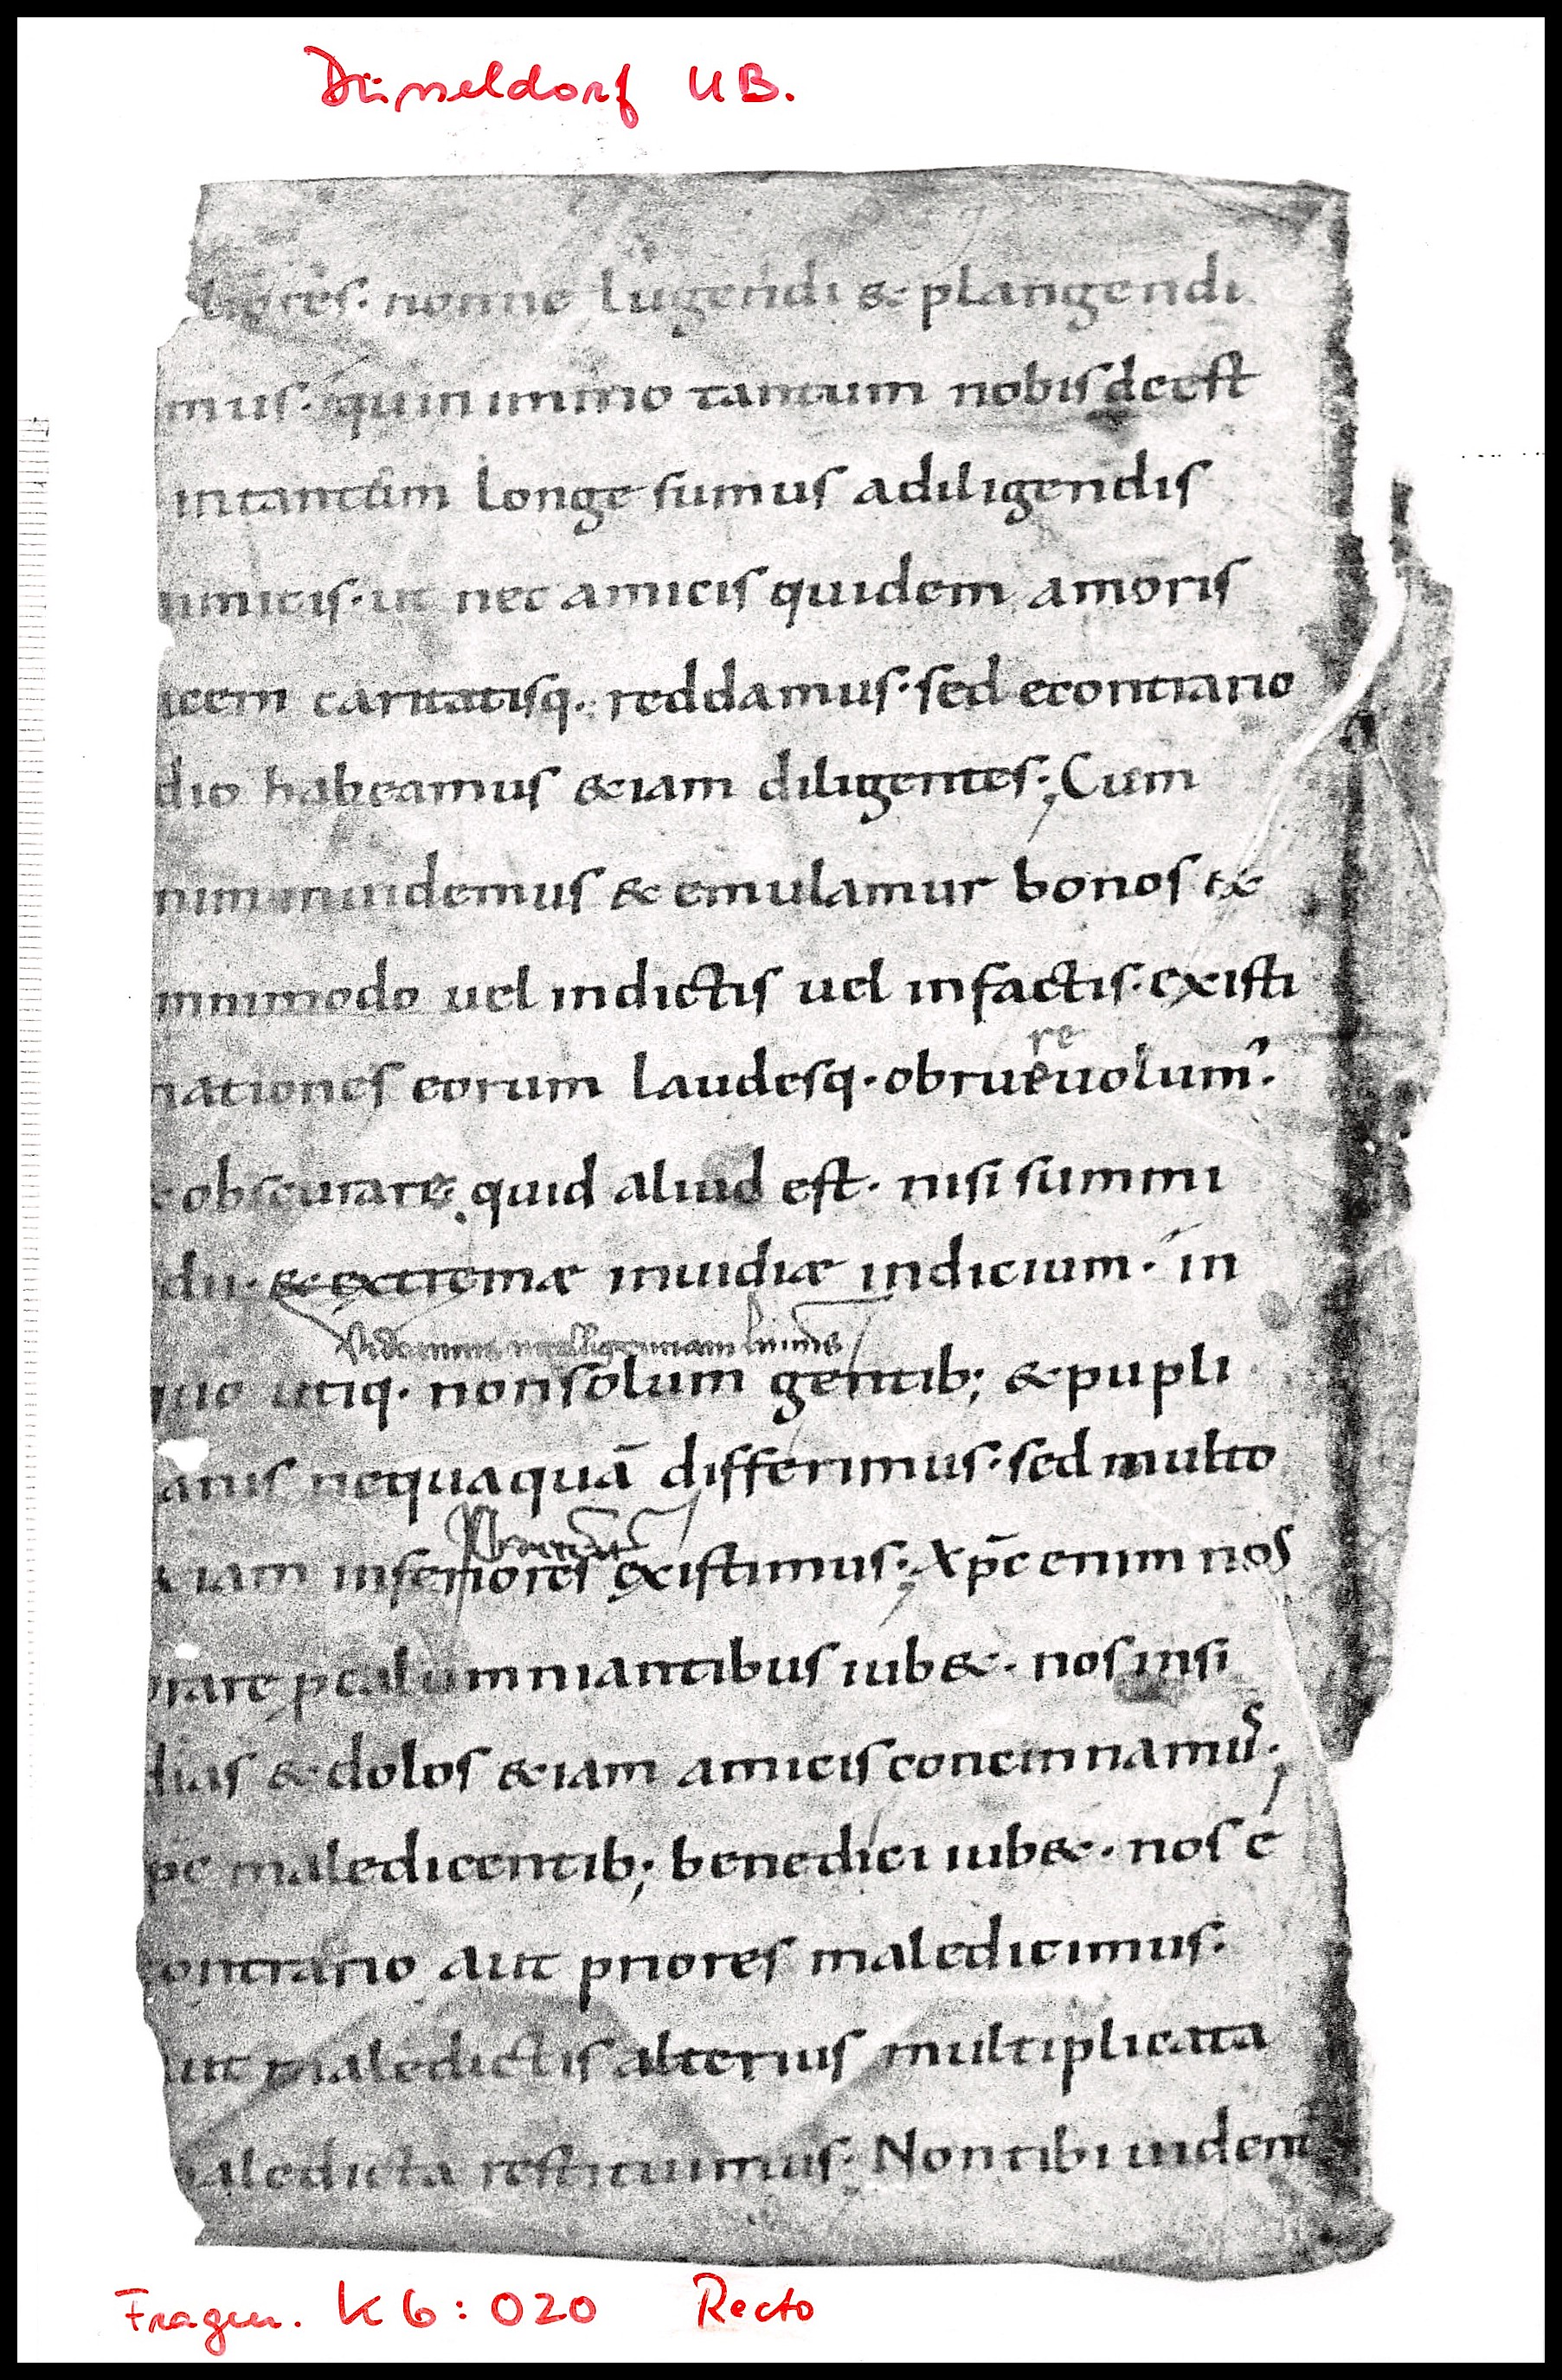 Düsseldorf UB.
liores· nonne lugendi & plangendi
mus· quin immo tantum nobis deest
in tantum longe sumus adiligendis
nimicis· ut nec amicis quidem amoris
icem caritatisq· reddamus· sed econtrario
dio habeamus &iam diligentes; Cum
nim inuidemus & emulamur bonos &
mnimodo uel indictis uel infactis· existi
re
nationes eorum laudesq· obrue uolum'·
& obscurare; quid aliud est· nisi summi
dii· & extremæ inuidiæ indicium· in
quo utiq· nonsolum gentib; & pupli
anis nequaquā differimus· sed multo
iam inferiores existimus; Xp̄c enim nos
orare p calumniantibus iub&· nos insi
dias & dolos &iam amicis concinnamus;
pc maledicentib; benedici iub&· nos e
contrario aut priores maledicimus·
aut maledictis alterius multiplicata
aledicta restituimus; Non tibi uidem̄
Fragm. K6:020 Recto